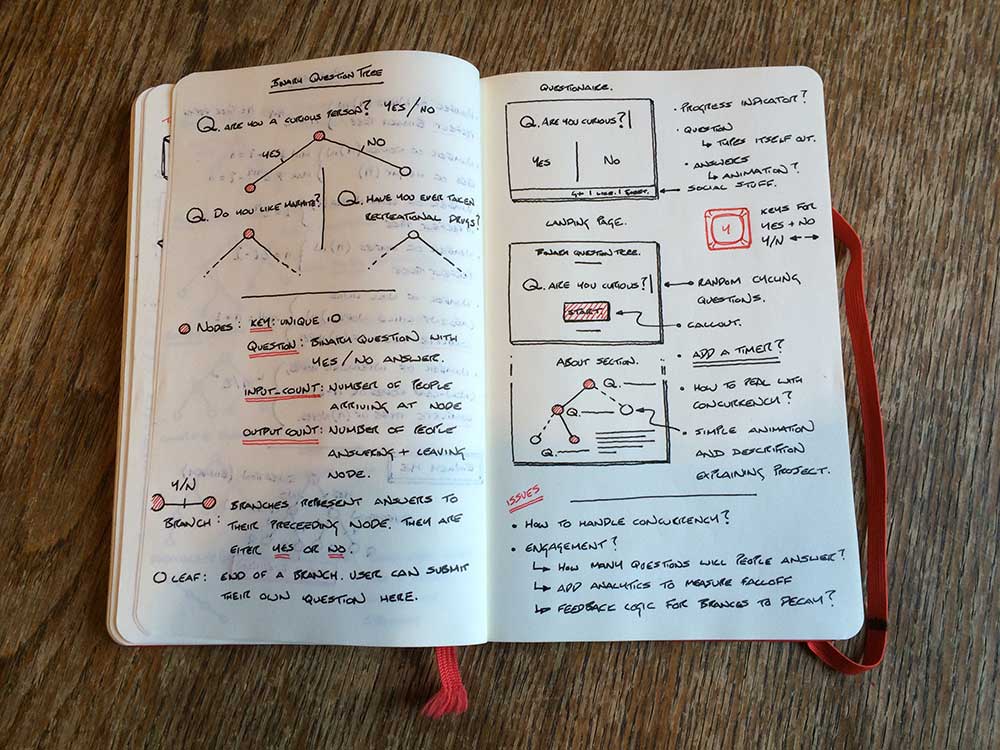 BINARY QUESTION TREE
Q. ARE YOU A CURIOUS PERSON? YES/NO
YES NO
Q. DO YOU LIKE MARMITE?
Q. HAVE YOU EVER TAKEN
RECREATIONAL DRUGS?
NODES: KEY: UNIQUE ID
QUESTION: BINARY QUESTION WITH
YES/NO ANSWER.
INPUT_COUNT: NUMBER OF PEOPLE
ARRIVING AT NODE
OUTPUT COUNT: NUMBER OF PEOPLE
ANSWERING + LEAVING
NODE.
Y/N
BRANCH:
BRANCHES REPRESENT ANSWERS TO
THEIR PRECEEDING NODE. THEY ARE
EITER YES OR NO.
LEAF: END OF A BRANCH. USER CAN SUBMIT
THEIR OWN QUESTION HERE.
QUESTIONAIRE.
Q. ARE YOU CURIOUS?
YES NO
G+ | LIKE |
• PROGRESS INDICATOR?
• QUESTION
↳ TYPES ITSELF OUT.
• ANSWERS
↳ ANIMATION?
SOCIAL STUFF.
Y
KEYS FOR
YES + NO
Y/N ↔
LANDING PAGE.
BINARY QUESTION TREE.
Q. ARE YOU CURIOUS?
START
RANDOM CYCLING
QUESTIONS.
CALLOUT.
ABOUT SECTION.
Q.
Q.
Q.
• ADD A TIMER?
• HOW TO DEAL WITH
CONCURRENCY?
• SIMPLE ANIMATION
AND DESCRIPTION
EXPLAINING PROJECT.
ISSUES
• HOW TO HANDLE CONCURRENCY?
• ENGAGEMENT?
↳ HOW MANY QUESTIONS WILL PEOPLE ANSWER?
↳ ADD ANALYTICS TO MEASURE FALLOFF
↳ FEEDBACK LOGIC FOR BRANCES TO DECAY?